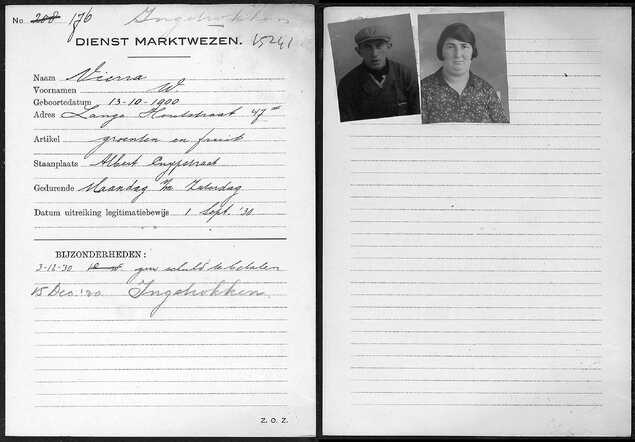 No. 208 176 Ingetrokken
DIENST MARKTWEZEN. 15241
Naam Vierra
Voornamen W.
Geboortedatum 13-10-1900
Adres Lange Houtstraat 47
Artikel groenten en fruit
Staanplaats Albert Cuypstraat
Gedurende Maandag t/m Zaterdag
Datum uitreiking legitimatiebewijs 1 Sept. '30
BIJZONDERHEDEN:
3-12-30 schuld te betalen
15 Dec. '30 Ingetrokken
Z.O.Z.